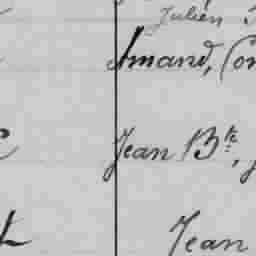 Julien
Amand, Con
Jean Bte,
Jean